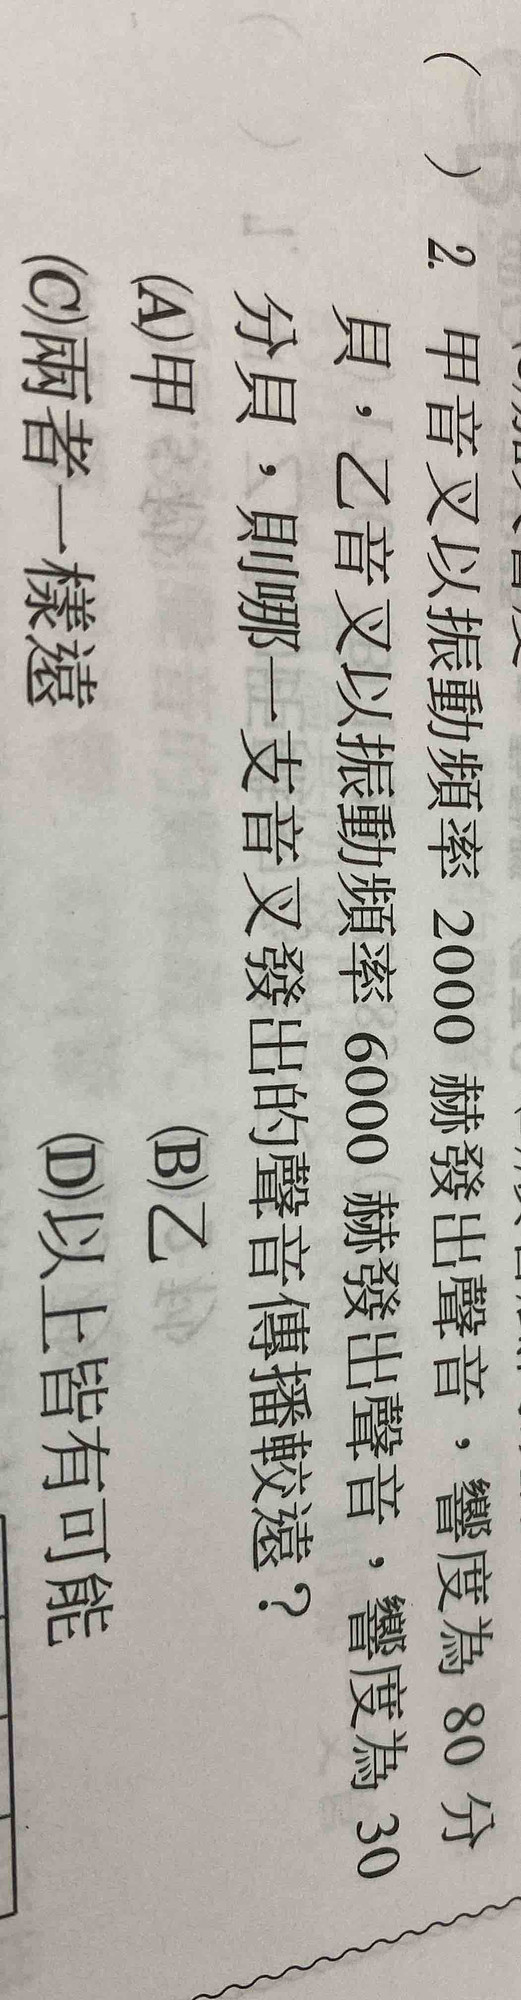 ( ) 2. 甲音叉以振動頻率 2000 赫發出聲音，響度為 80 分
貝，乙音叉以振動頻率 6000 赫發出聲音，響度為 30
分貝，則哪一支音叉發出的聲音傳播較遠？
(A)甲 (B)乙
(C)兩者一樣遠 (D)以上皆有可能